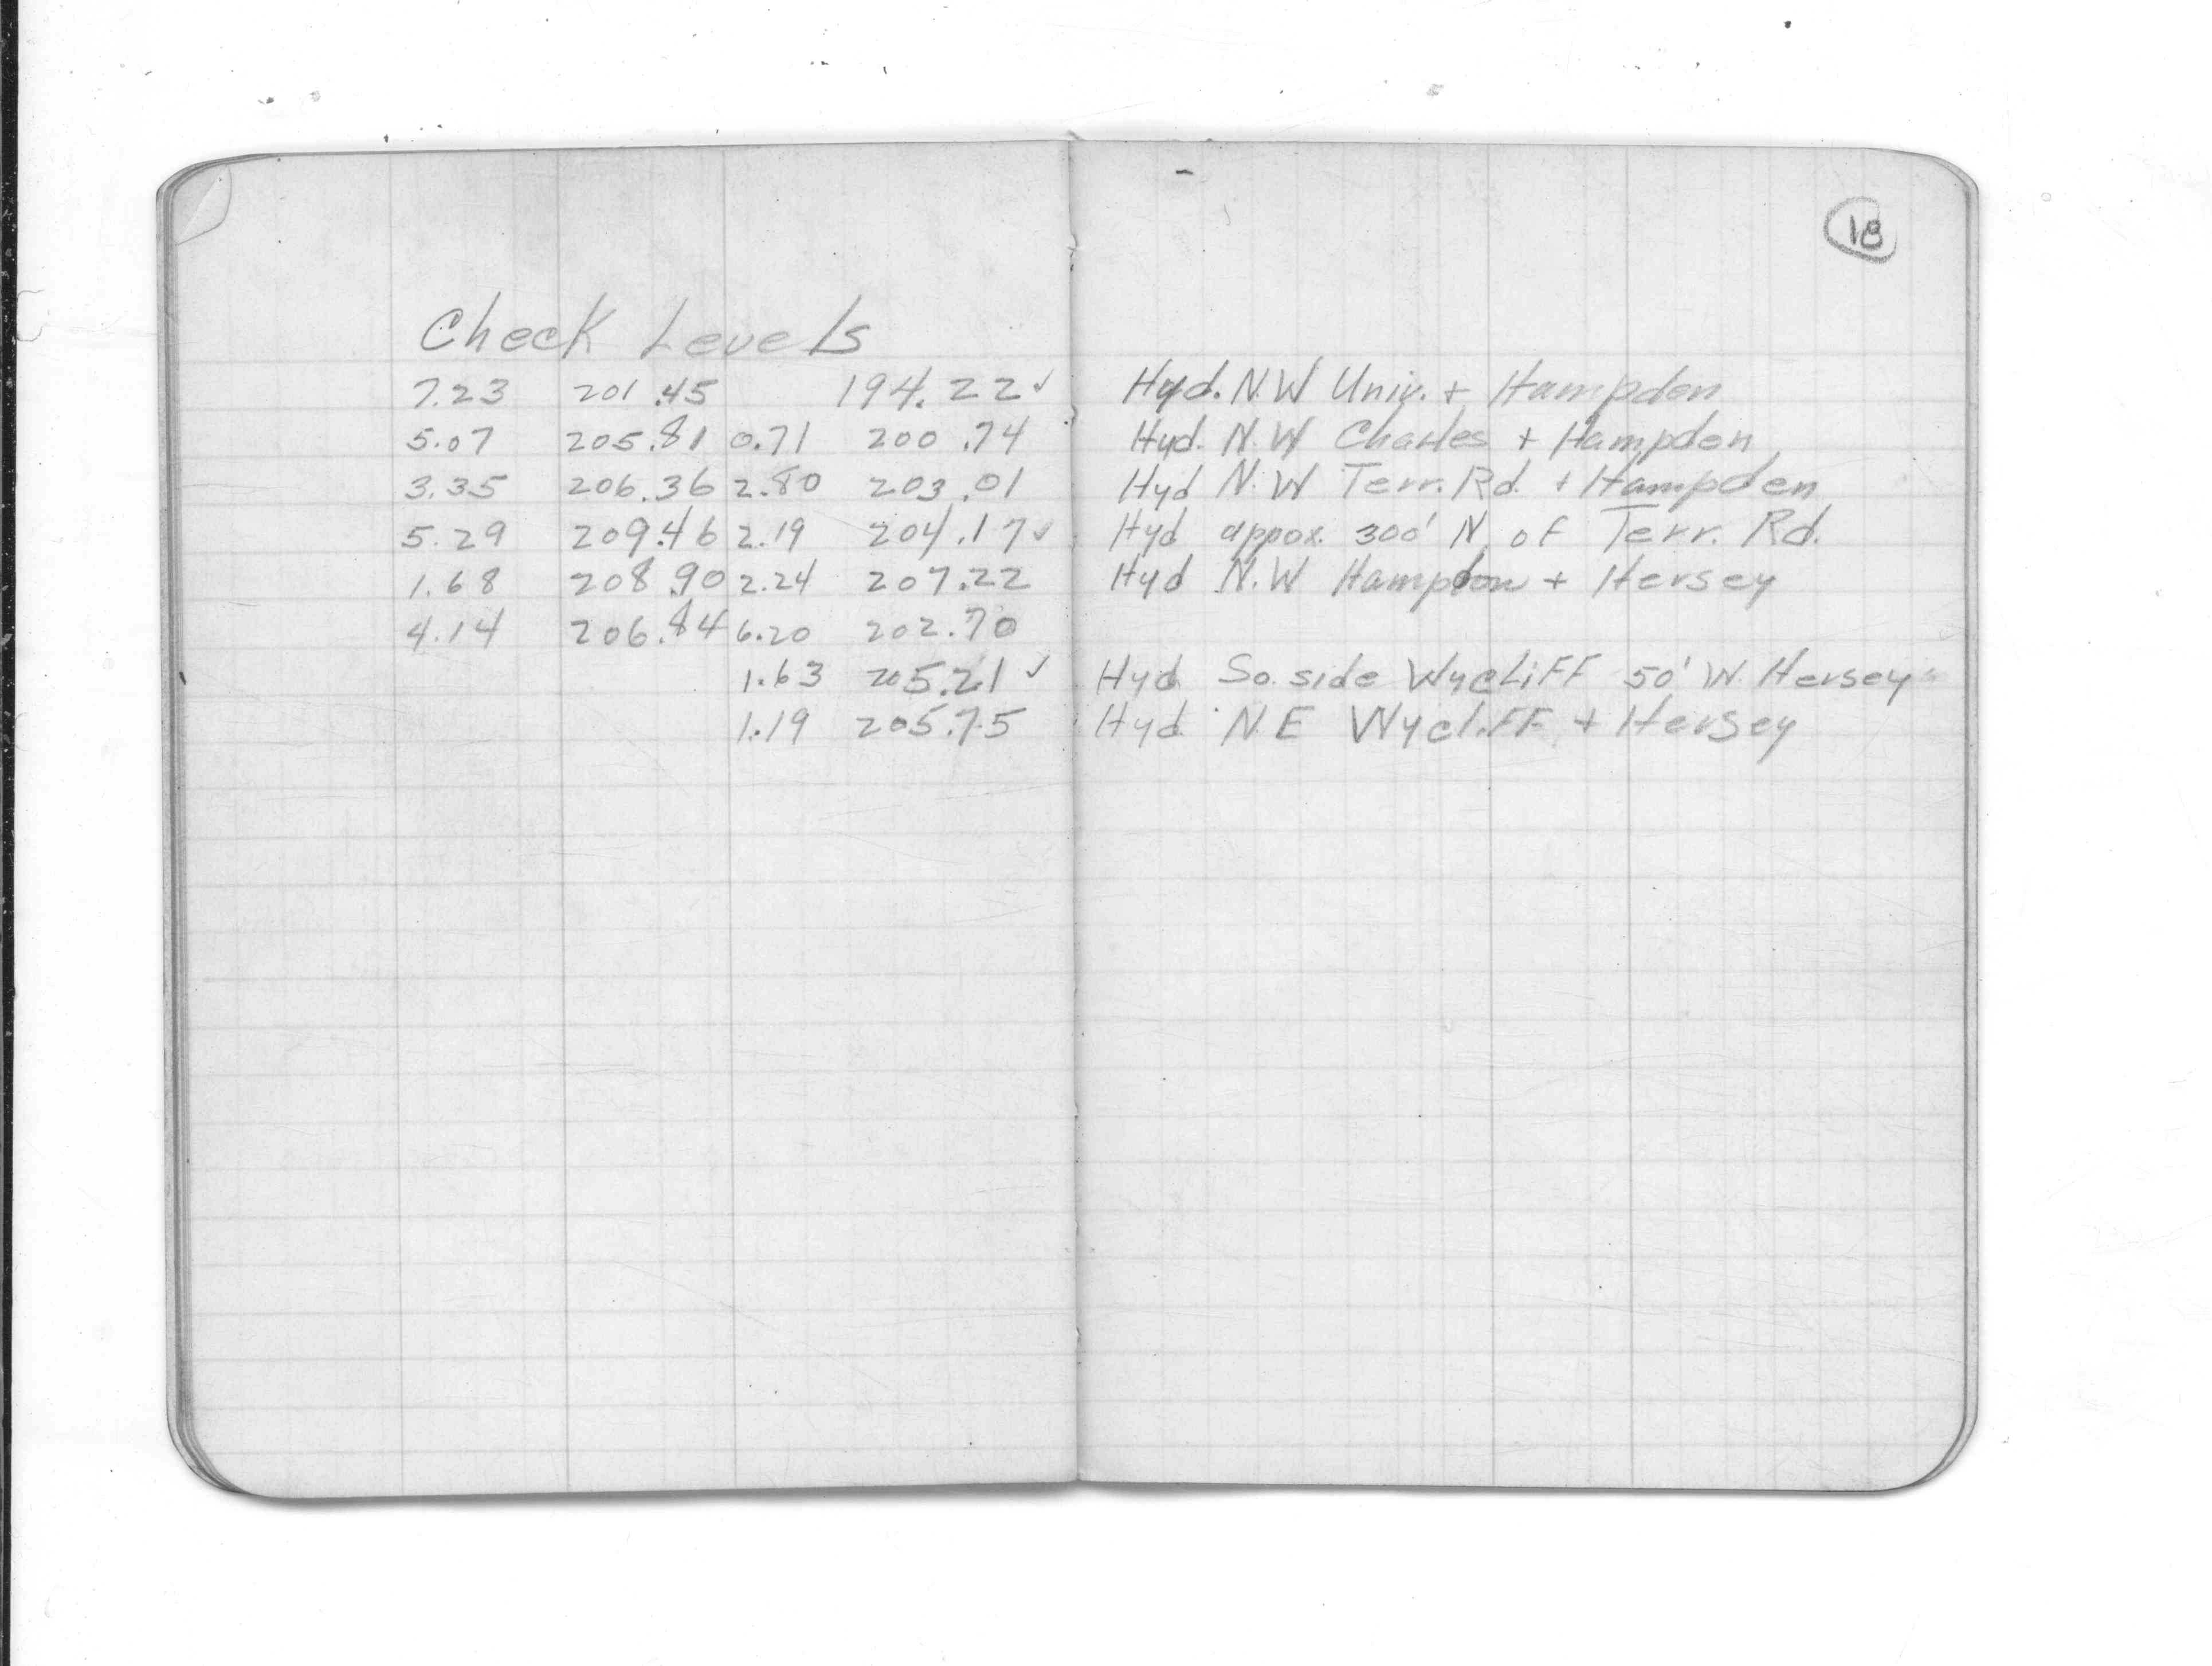 18
Check Levels
7.23 201.45 194.22✓ Hyd. N.W Univ. + Hampden
5.07 205.81 0.71 200.74 Hyd. N.W Charles + Hampden
3.35 206.36 2.80 203.01 Hyd N.W Terr. Rd. + Hampden
5.29 209.46 2.19 204.17✓ Hyd appox. 300' N. of Terr. Rd.
1.68 208.90 2.24 207.22 Hyd N.W Hampton + Hersey
4.14 206.84 6.20 202.70
1.63 205.21 ✓ Hyd So. side WycLiFF 50' W. Hersey
1.19 205.75 Hyd N E WycliFF + Hersey